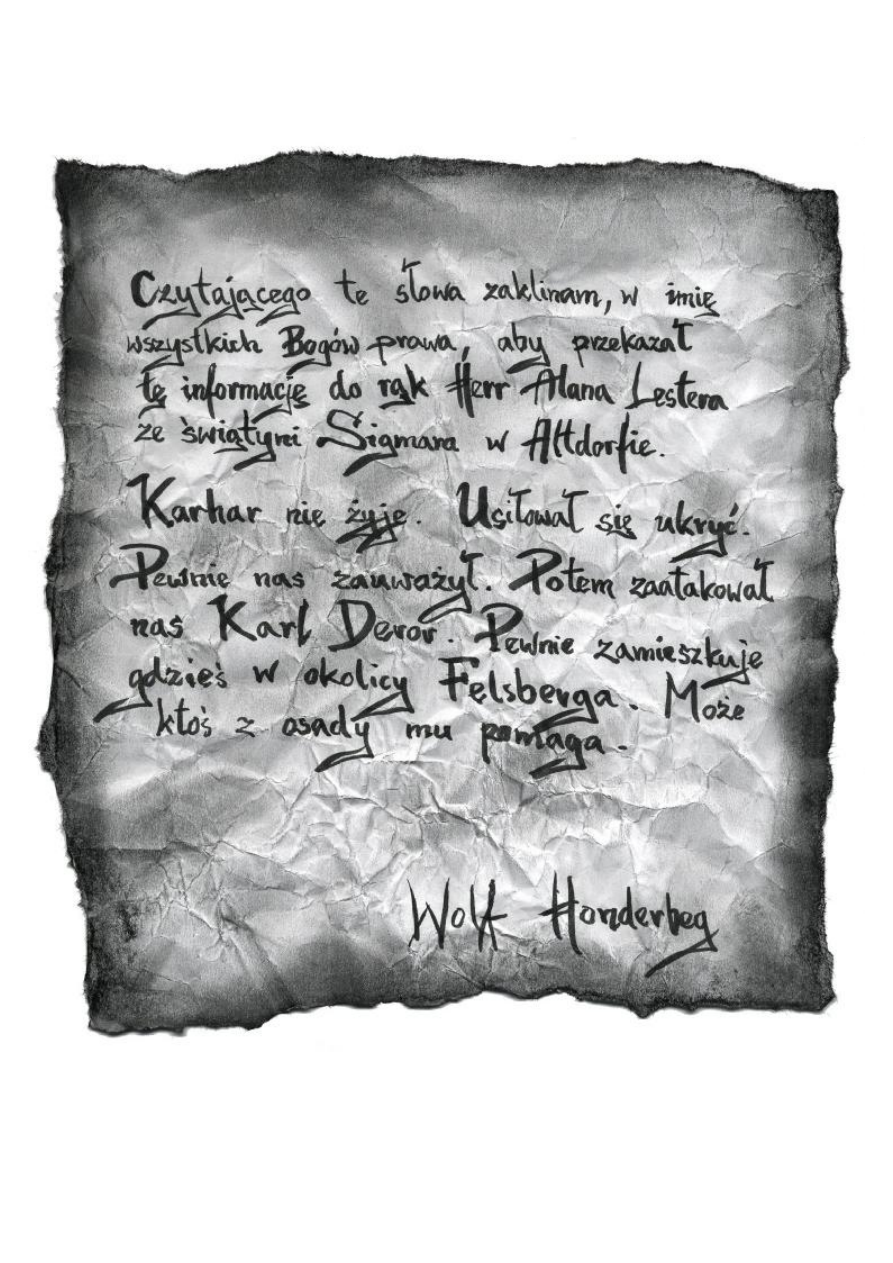 Czytającego te słowa zaklinam, w imię
wszystkich Bogów prawa, aby przekazał
tę informację do rąk Herr Alana Lestera
ze świątyni Sigmara w Altdorfie.
Karhar nie żyje. Usiłował się ukryć.
Pewnie nas zauważył. Potem zaatakował
nas Karl Devor. Pewnie zamieszkuje
gdzieś w okolicy Felsberga. Może
ktoś z osady mu pomaga.
Wolf Honderbeg